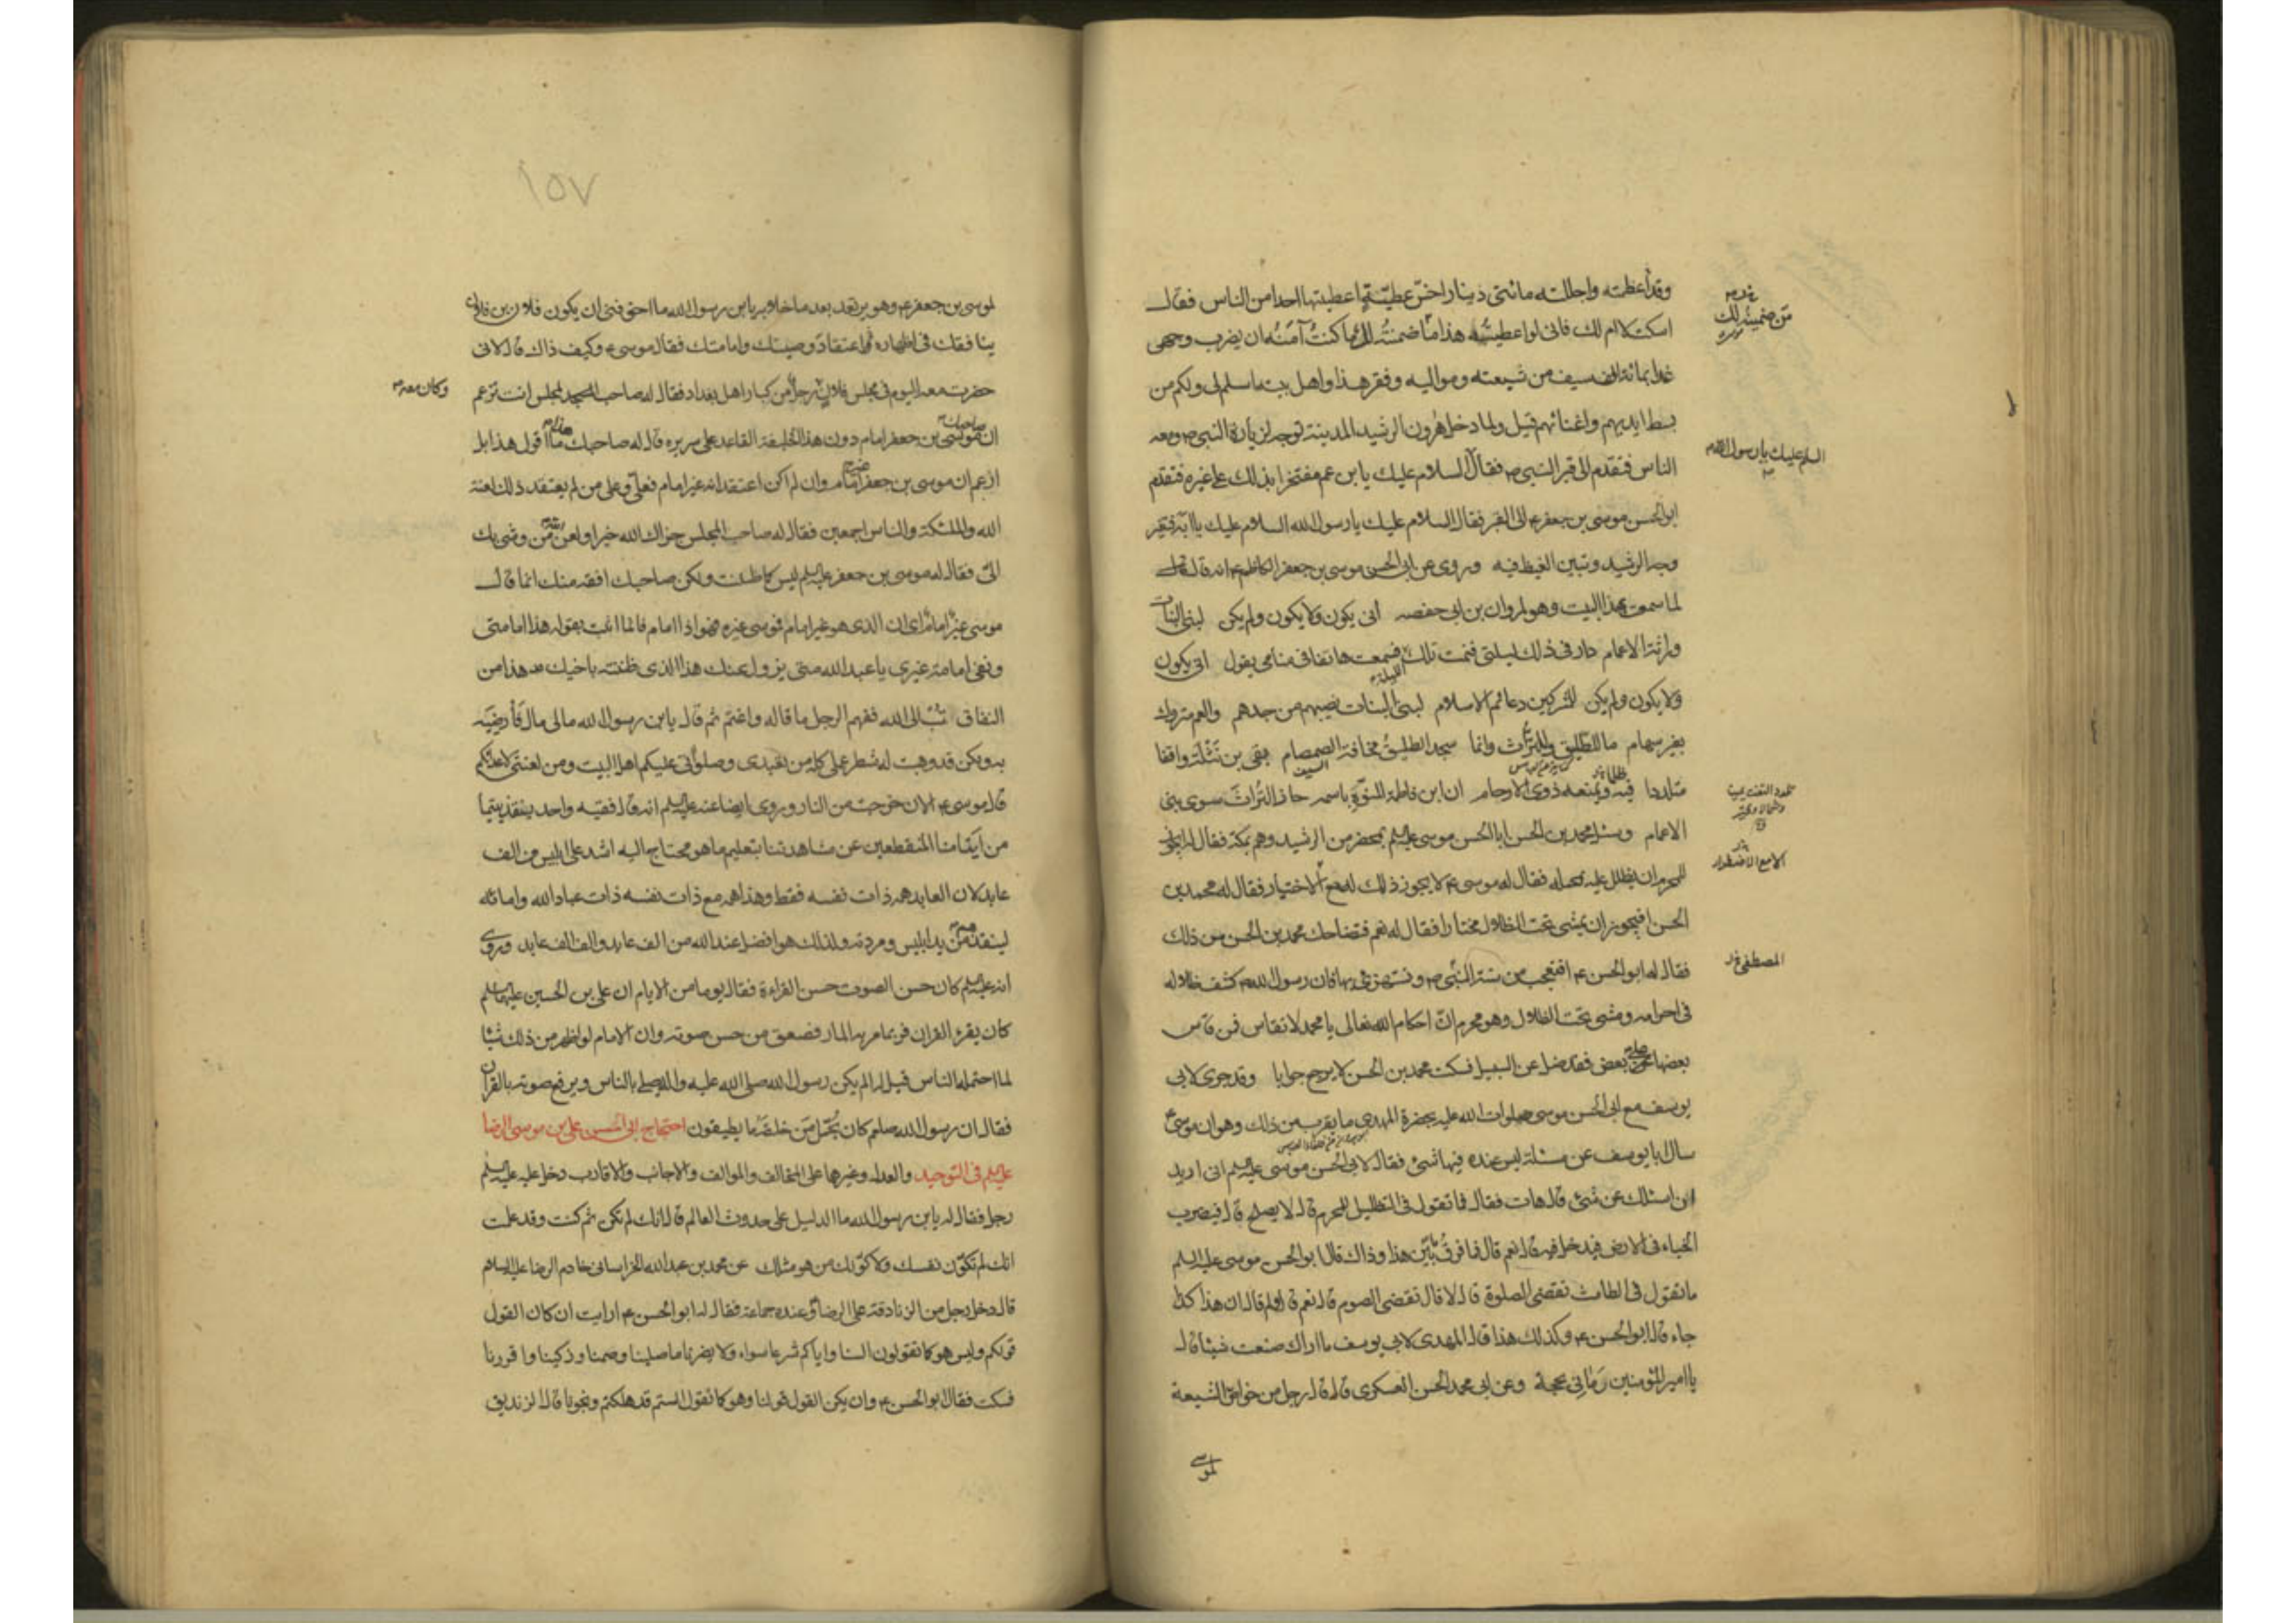 وقد اعظمته واجللته مائتي دينار اخس عطية اعطيتها احدا من الناس فقال
اسكت لا ام لك فاني لو اعطيته هذا ما ضمنته له ما كنت آمنه ان يضرب وجهي
غدا بمائة الف سيف من شيعته ومواليه وفقر هذا واهل بيته اسلم لي ولكم من
بسط ايديهم واغنائهم قيل ولما دخل هرون الرشيد المدينة توجه لزيارة النبي ص ومعه
الناس فتقدم الى قبر النبي ص فقال السلام عليك يا ابن عم مفتخرا بذلك على غيره فتقدم
ابو الحسن موسى بن جعفر ع الى القبر فقال السلام عليك يا رسول الله السلام عليك يا ابه فتغير
وجه الرشيد وتبين الغيظ فيه وروى عن ابي الحسن موسى بن جعفر الكاظم ع انه قال
لما سمعت هذا البيت وهو لمروان بن ابي حفصه انى يكون ولا يكون ولم يكن لبني البنات
وراثة الاعمام دار في ذلك ليلتي فنمت تلك الليلة فسمعت هاتفا في منامي يقول انى يكون
ولا يكون ولم يكن للمشركين دعائم الاسلام لبني البنات نصيبهم من جدهم والعم متروك
بغير سهام ما للطليق وللتراث وانما سجد الطليق مخافة الصمصام بقي بن نثلة واقفا
متلددا فيه ويمنعه ذوي الارحام ان ابن فاطمة المنوه باسمه حاز التراث سوى بني
الاعمام وسئل محمد بن الحسن ابا الحسن موسى عليه السلم بمحضر من الرشيد وهم بمكة فقال له ايجوز
للمحرم ان يظلل عليه محمله فقال له موسى ع لا يجوز ذلك له مع الاختيار فقال له محمد بن
الحسن افيجوز ان يمشي تحت الظلال مختارا فقال له نعم فتضاحك محمد بن الحسن من ذلك
فقال له ابو الحسن ع افتعجب من سنة النبي ص وتستهزئ بها فان رسول الله ص كشف ظلاله
في احرامه ومشى تحت الظلال وهو محرم ان احكام الله تعالى يا محمد لا تقاس فمن قاس
بعضها على بعض فقد ضل عن السبيل فسكت محمد بن الحسن لا يرجع جوابا وقد جرى لابي
يوسف مع ابي الحسن موسى صلوات الله عليه بحضرة المهدي ما يقرب من ذلك وهو ان موسى ع
سال ابا يوسف عن مسئلة ليس عنده فيها شئ فقال لابي الحسن موسى عليه السلم اني اريد
ان اسئلك عن شئ قال هات فقال فما تقول في التظليل للمحرم قال لا يصلح قال فيضرب
الخباء في الارض فيدخل فيه قال نعم قال فما فرق بين هذا وذاك قال ابو الحسن موسى عليه السلم
ما تقول في الطامث تقضي الصلوة قال لا قال تقضي الصوم قال نعم قال ولم قال ان هذا كذا
جاء قال ابو الحسن ع وكذلك هذا قال المهدي لابي يوسف ما اراك صنعت شيئا قال
يا امير المؤمنين رماني بحجة وعن ابي محمد الحسن العسكري قال قال رجل من خواص الشيعة
لموسى
من ضمنته لك
السلم عليك يا رسول الله
الا مع الاضطرار
المصطفى
١٥٧
لموسى بن جعفر ع وهو يرتعد بعد ما خلا به يا ابن رسول الله ما اخوفني ان يكون فلان بن فلان
ينافقك في اظهاره اعتقاد وصيتك وامامتك فقال موسى ع وكيف ذاك قال لاني
حضرت معه اليوم في مجلس فلان رجل من كبار اهل بغداد فقال له صاحب المجلس انت تزعم
ان موسى بن جعفر امام دون هذا الخليفة القاعد على سريره قال له صاحبك ما اقول هذا بل
ازعم ان موسى بن جعفر غير امام وان لم اكن اعتقد انه غير امام فعلي وعلى من لم يعتقد ذلك لعنة
الله والملئكة والناس اجمعين فقال له صاحب المجلس جزاك الله خيرا ولعن الله من وشى بك
الي فقال له موسى بن جعفر عليه السلم ليس كما ظننت ولكن صاحبك افقه منك انما قال
موسى غير امام اي ان الذي هو غير امام فموسى غيره فهو اذا امام فانما اثبت بقوله هذا امامتي
ونفى امامة غيري يا عبد الله متى يزول عنك هذا الذي ظننته باخيك هذا من
النفاق تب الى الله ففهم الرجل ما قاله واغتم ثم قال يا ابن رسول الله ما لي مال فأرضيه
به ولكن قد وهبت له شطر عملي كله من تعبدي وصلوتي عليكم اهل البيت ومن لعنتي لاعدائكم
قال موسى ع الان خرجت من النار وروى ايضا عنه عليه السلم انه قال فقيه واحد ينقذ يتيما
من ايتامنا المنقطعين عن مشاهدتنا بتعليم ما هو محتاج اليه اشد على ابليس من الف
عابد لان العابد همه ذات نفسه فقط وهذا همه مع ذات نفسه ذات عباد الله وامائه
لينقذهم من يد ابليس ومردته ولذلك هو افضل عند الله من الف عابد والف الف عابد وروى
انه عليه السلم كان حسن الصوت حسن القراءة فقال يوما من الايام ان علي بن الحسين عليهما السلم
كان يقرء القران فربما مر به المار فصعق من حسن صوته وان الامام لو اظهر من ذلك شيئا
لما احتمله الناس قيل له الم يكن رسول الله صلى الله عليه واله يصلي بالناس ويرفع صوته بالقرآن
فقال ان رسول الله صلعم كان يحمل من خلفه ما يطيقون احتجاج ابي الحسن علي بن موسى الرضا
عليه السلم في التوحيد والعدل وغيرها على المخالف والموالف والاجانب والاقارب دخل عليه عليه السلم
رجل فقال له يا ابن رسول الله ما الدليل على حدوث العالم قال انك لم تكن ثم كنت وقد علمت
انك لم تكون نفسك ولا كونك من هو مثلك عن محمد بن عبد الله الخراساني خادم الرضا عليه السلام
قال دخل رجل من الزنادقة على الرضا وعنده جماعة فقال له ابو الحسن ع ارايت ان كان القول
قولكم وليس هو كما تقولون السنا واياكم شرعا سواء ولا يضرنا ما صلينا وصمنا وزكينا واقررنا
فسكت فقال ابو الحسن ع وان يكن القول قولنا وهو كما نقول الستم قد هلكتم ونجونا قال الزنديق
وكان معه